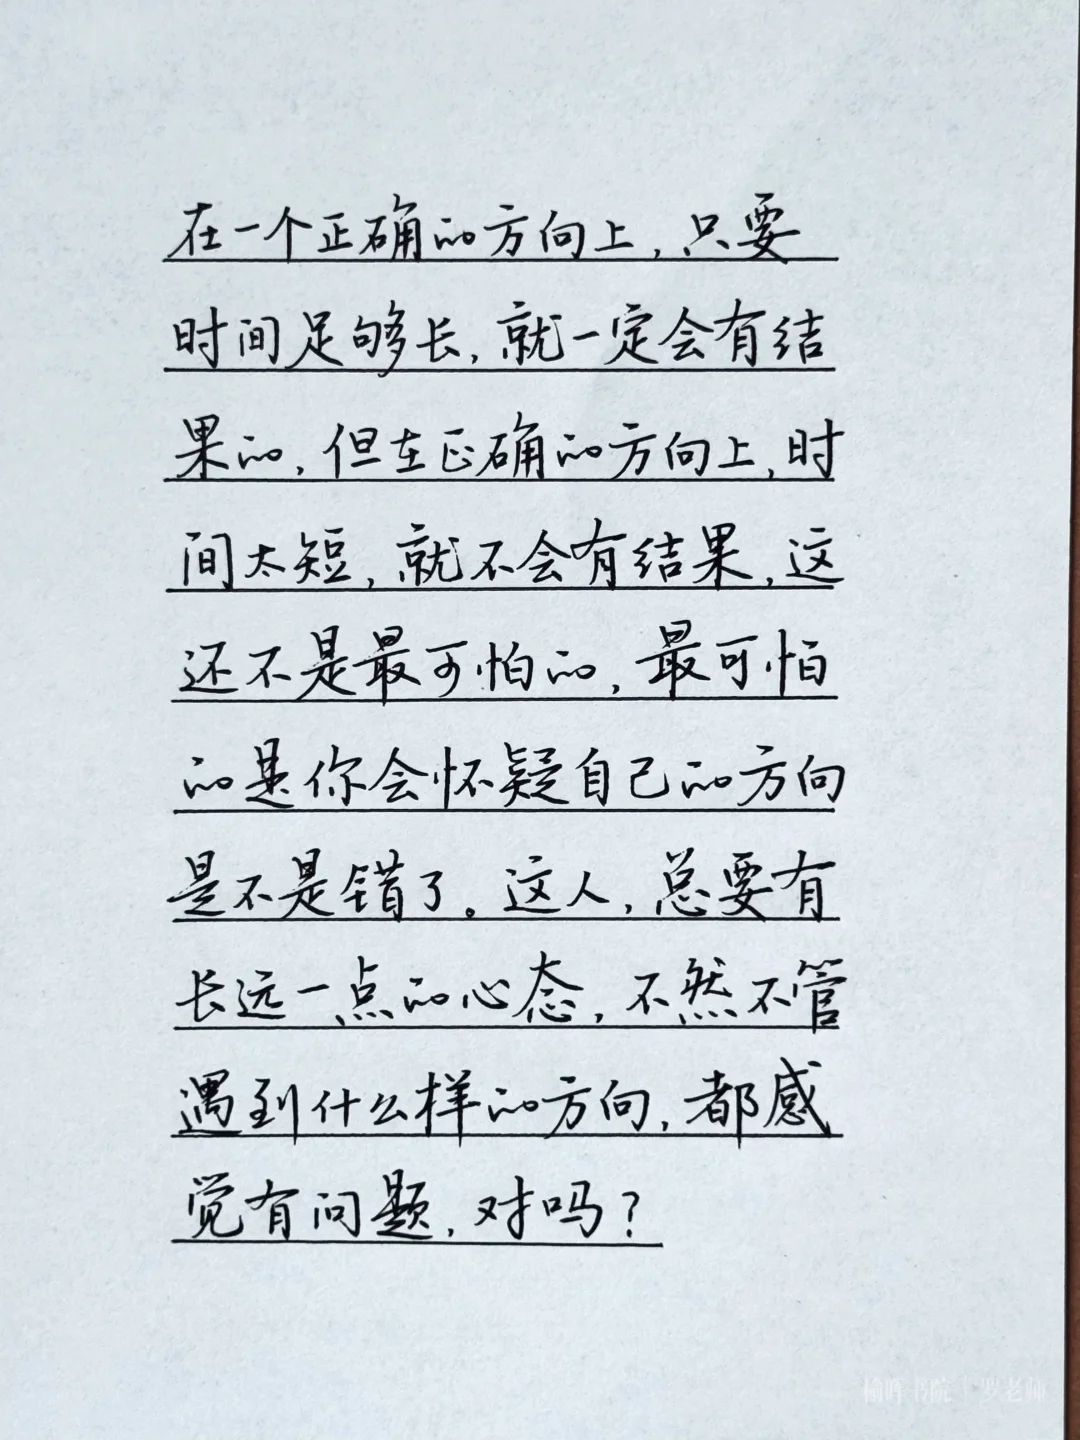 在一个正确的方向上,只要
时间足够长,就一定会有结
果的,但在正确的方向上,时
间太短,就不会有结果,这
还不是最可怕的,最可怕
的是你会怀疑自己的方向
是不是错了。这人,总要有
长远一点的心态,不然不管
遇到什么样的方向,都感
觉有问题,对吗?
书院|罗老师